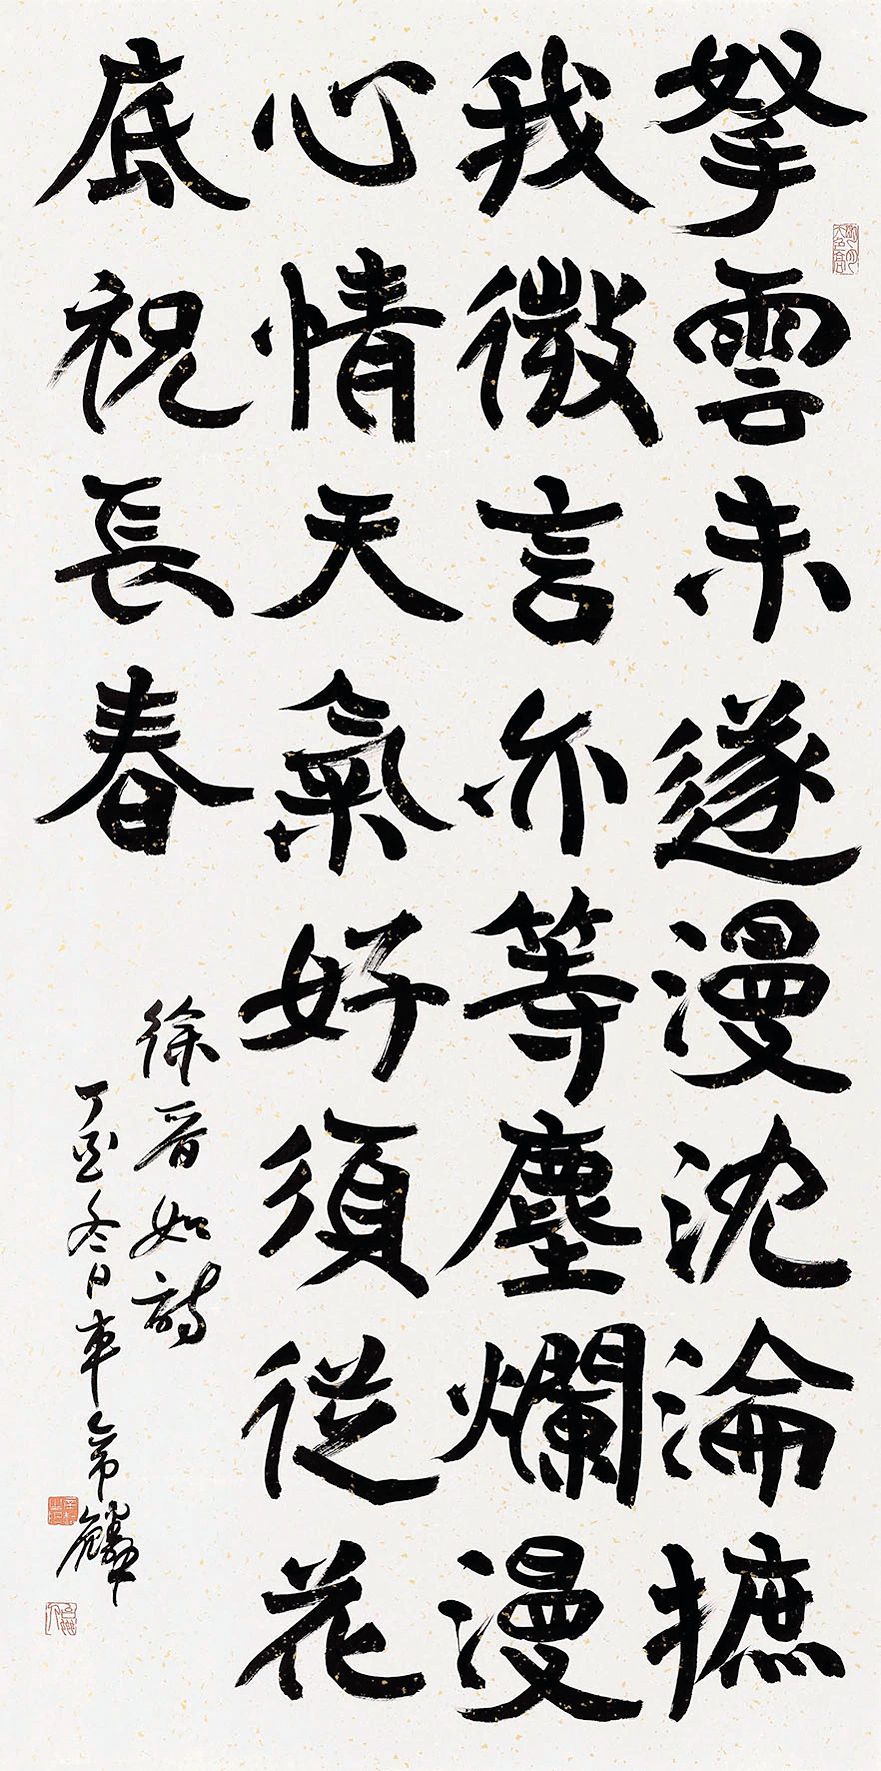 拏雲未遂漫沈淪摭
我微言亦等塵爛漫
心情天氣好須從花
底祝長春
徐晋如詩
丁酉冬日